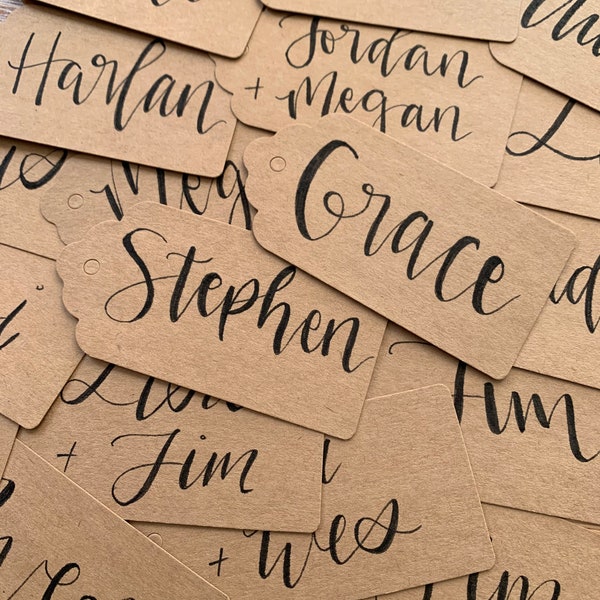 Harlan
Jordan
+ Megan
Grace
Meg
Stephen
Jim
+ Jim
+ Wes
Jim